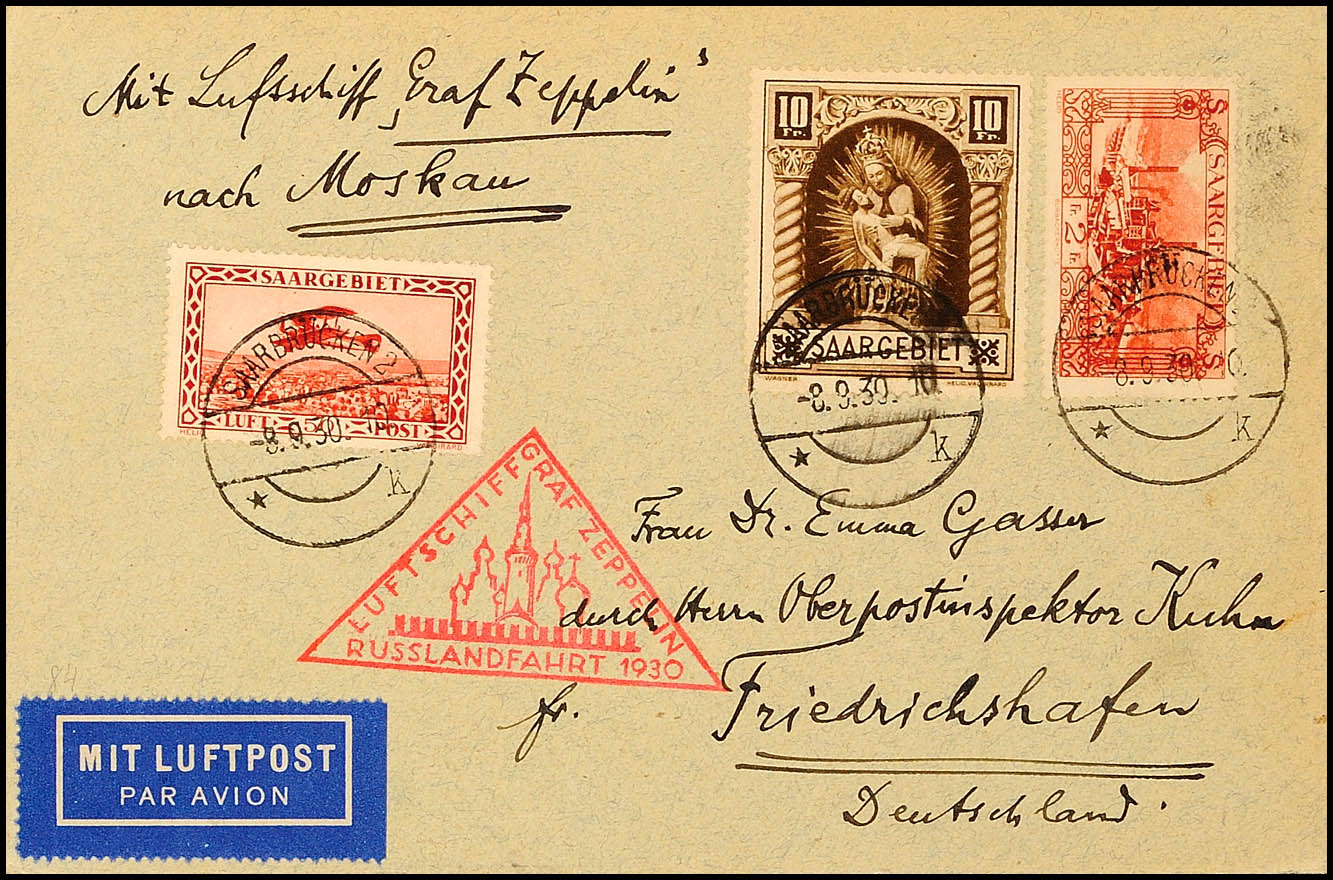 Mit Luftschiff „Graf Zeppelin“
nach Moskau
SAARGEBIET
LUFT POST
10 Fr. 10 Fr.
SAARGEBIET
WAGNER
SAARGEBIET
Fr. 2 Fr.
SAARBRÜCKEN 2
-8.9.30. 10
k
SAARBRÜCKEN
-8.9.30. 10
k
SAARBRÜCKEN
-8.9.30.
k
LUFTSCHIFF GRAF ZEPPELIN
RUSSLANDFAHRT 1930
Frau Dr. Emma Gasser
durch Herrn Oberpostinspektor Kuhn
fr. Friedrichshafen
Deutschland.
84
MIT LUFTPOST
PAR AVION